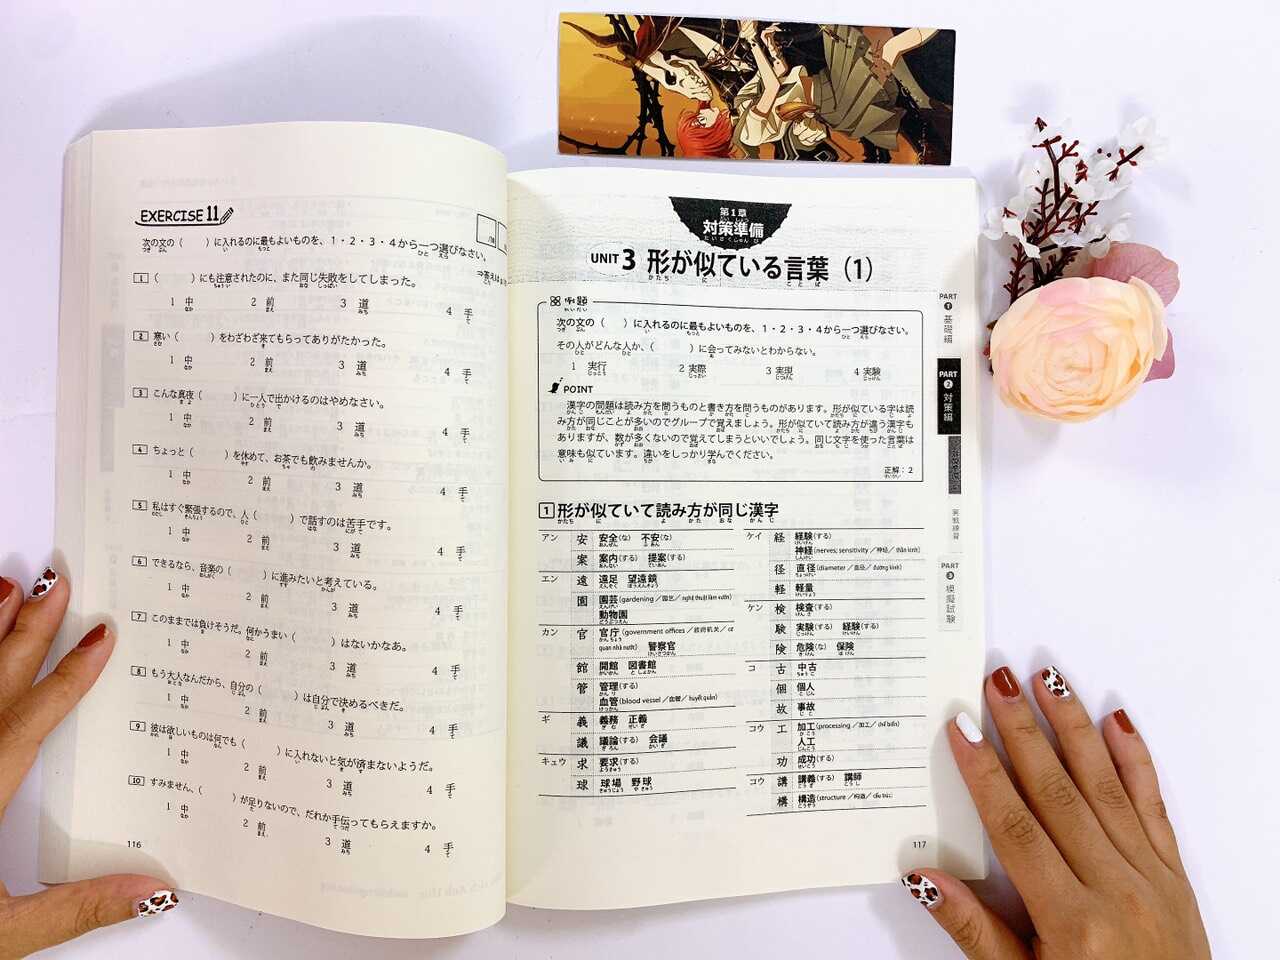 EXERCISE 11
次の文の（　）に入れるのに最もよいものを、1・2・3・4から一つ選びなさい。
1 （　）にも注意されたのに、また同じ失敗をしてしまった。
1 中 2 前 3 道 4 手
2 寒い（　）をわざわざ来てもらってありがたかった。
1 中 2 前 3 道 4 手
3 こんな真夜（　）に一人で出かけるのはやめなさい。
1 中 2 前 3 道 4 手
4 ちょっと（　）を休めて、お茶でも飲みませんか。
1 中 2 前 3 道 4 手
5 私はすぐ緊張するので、人（　）で話すのは苦手です。
1 中 2 前 3 道 4 手
6 できるなら、音楽の（　）に進みたいと考えている。
1 中 2 前 3 道 4 手
7 このままでは負けそうだ。何かうまい（　）はないかなあ。
1 中 2 前 3 道 4 手
8 もう大人なんだから、自分の（　）は自分で決めるべきだ。
1 中 2 前 3 道 4 手
9 彼は欲しいものは何でも（　）に入れないと気が済まないようだ。
1 中 2 前 3 道 4 手
10 すみません、（　）が足りないので、だれか手伝ってもらえますか。
1 中 2 前 3 道 4 手
116
第1章
対策準備
UNIT 3 形が似ている言葉（1）
例題
次の文の（　）に入れるのに最もよいものを、1・2・3・4から一つ選びなさい。
その人がどんな人か、（　）に会ってみないとわからない。
1 実行 2 実際 3 実現 4 実験
POINT
漢字の問題は読み方を問うものと書き方を問うものがあります。形が似ている字は読
み方が同じことが多いのでグループで覚えましょう。形が似ていて読み方が違う漢字も
ありますが、数が多くないので覚えてしまうといいでしょう。同じ文字を使った言葉は
意味も似ています。違いをしっかり学んでください。
正解：2
1 形が似ていて読み方が同じ漢字
アン 安 安全(な) 不安(な)
案 案内(する) 提案(する)
エン 遠 遠足 望遠鏡
園 園芸(gardening／园艺／nghệ thuật làm vườn)
動物園
カン 官 官庁(government offices／政府机关／cơ
quan nhà nước) 警察官
館 開館 図書館
管 管理(する)
血管(blood vessel／血管／huyết quản)
ギ 義 義務 正義
議 議論(する) 会議
キュウ 求 要求(する)
球 球場 野球
ケイ 経 経験(する)
神経(nerves; sensitivity／神经／thần kinh)
径 直径(diameter／直径／đường kính)
軽 軽量
ケン 検 検査(する)
験 実験(する) 経験(する)
険 危険(な) 保険
コ 古 中古
個 個人
故 事故
コウ 工 加工(processing／加工／chế biến)
人工
功 成功(する)
コウ 講 講義(する) 講師
構 構造(structure／构造／cấu trúc)
117
PART 1 基礎編
PART 2 対策編
実戦練習
PART 3 模擬試験